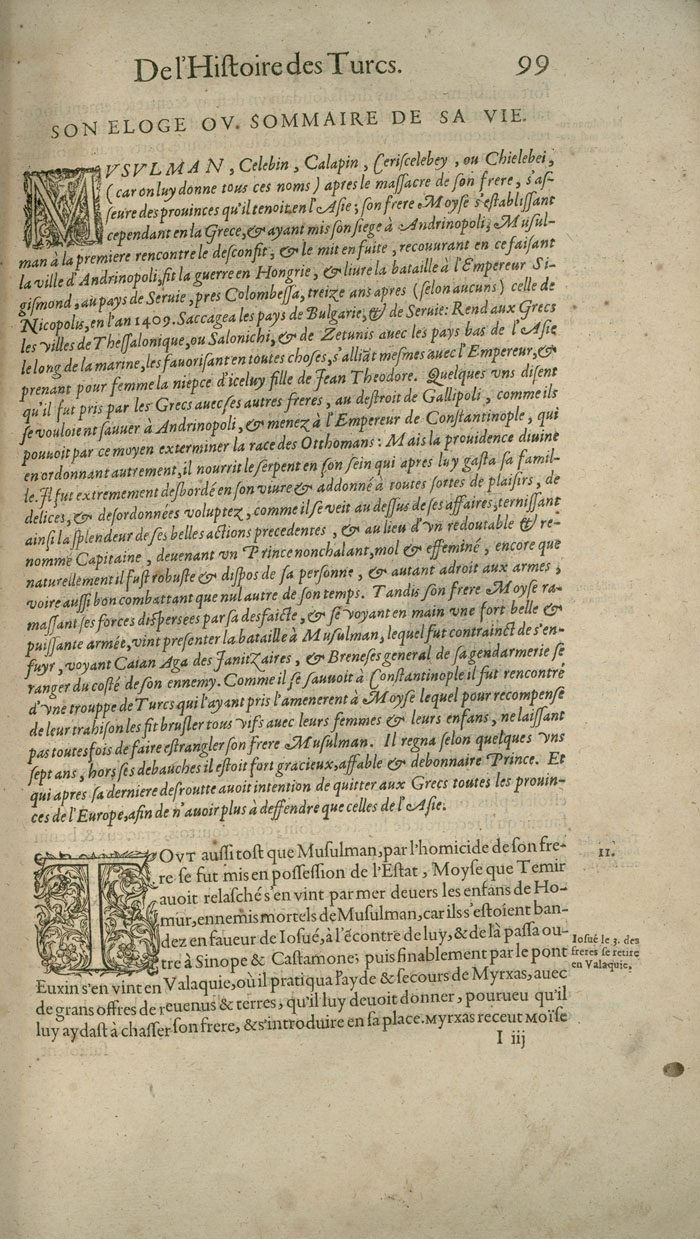 De l'Histoire des Turcs. 99
SON ELOGE OV. SOMMAIRE DE SA VIE.
MVSVLMAN, Celebin, Calapin, Ceriscelebey, ou Chielebei,
(car on luy donne tous ces noms) apres le massacre de son frere, s'as-
seure des prouinces qu'il tenoit en l'Asie; son frere Moyse s'establissant
cependant en la Grece, & ayant mis son siege à Andrinopoli; Musul-
man à la premiere rencontre le desconfit, & le mit en fuite, recouurant en ce faisant
la ville d'Andrinopoli, fit la guerre en Hongrie, & liure la bataille à l'Empereur Si-
gismond, au pays de Seruie, pres Colombessa, treize ans apres (selon aucuns) celle de
Nicopolis, en l'an 1409. Saccagea les pays de Bulgarie, & de Seruie: Rend aux Grecs
les villes de Thessalonique, ou Salonichi, & de Zetunis auec les pays bas de l'Asie
le long de la marine, les fauorisant en toutes choses, s'alliãt mesmes auec l'Empereur, &
prenant pour femme la niepce d'iceluy fille de Jean Theodore. Quelques vns disent
qu'il fut pris par les Grecs auec ses autres freres, au destroit de Gallipoli, comme ils
se vouloient sauuer à Andrinopoli, & menez à l'Empereur de Constantinople, qui
pouuoit par ce moyen exterminer la race des Otthomans: Mais la prouidence diuine
en ordonnant autrement, il nourrit le serpent en son sein qui apres luy gasta sa famil-
le. Il fut extremement desbordé en son viure & addonné à toutes sortes de plaisirs, de
delices, & desordonnées voluptez, comme il se veit au dessus de ses affaires, ternissant
ainsi la splendeur de ses belles actions precedentes, & au lieu d'vn redoutable & re-
nommé Capitaine, deuenant vn Prince nonchalant, mol & effeminé, encore que
naturellement il fust robuste & dispos de sa personne, & autant adroit aux armes,
voire aussi bon combattant que nul autre de son temps. Tandis son frere Moyse ra-
massant ses forces dispersees par sa desfaicte, & se voyant en main vne fort belle &
puissante armée, vint presenter la bataille à Musulman, lequel fut contrainct de s'en-
fuyr, voyant Caian Aga des Janitzaires, & Breneses general de sa gendarmerie se
ranger du costé de son ennemy. Comme il se sauuoit à Constantinople il fut rencontré
d'vne trouppe de Turcs qui l'ayant pris l'amenerent à Moyse lequel pour recompense
de leur trahison les fit brusler tous vifs auec leurs femmes & leurs enfans, ne laissant
pas toutesfois de faire estrangler son frere Musulman. Il regna selon quelques vns
sept ans, hors ses debauches il estoit fort gracieux, affable & debonnaire Prince. Et
qui apres sa derniere desroutte auoit intention de quitter aux Grecs toutes les prouin-
ces de l'Europe, afin de n'auoir plus à deffendre que celles de l'Asie.
TOVT aussi tost que Musulman, par l'homicide de son fre-
re se fut mis en possession de l'Estat, Moyse que Temir
auoit relasché s'en vint par mer deuers les enfans de Ho-
mur, ennemis mortels de Musulman, car ils s'estoient ban-
dez en faueur de Iosué, à l'écontre de luy, & de là passa ou-
tre à Sinope & Castamone; puis finablement par le pont
Euxin s'en vint en Valaquie, où il pratiqua l'ayde & secours de Myrxas, auec
de grans offres de reuenus & terres, qu'il luy deuoit donner, pourueu qu'il
luy aydast à chasser son frere, & s'introduire en sa place. Myrxas receut Moïse
II.
Iosué le 3. des
freres se retire
en Valaquie.
I iij